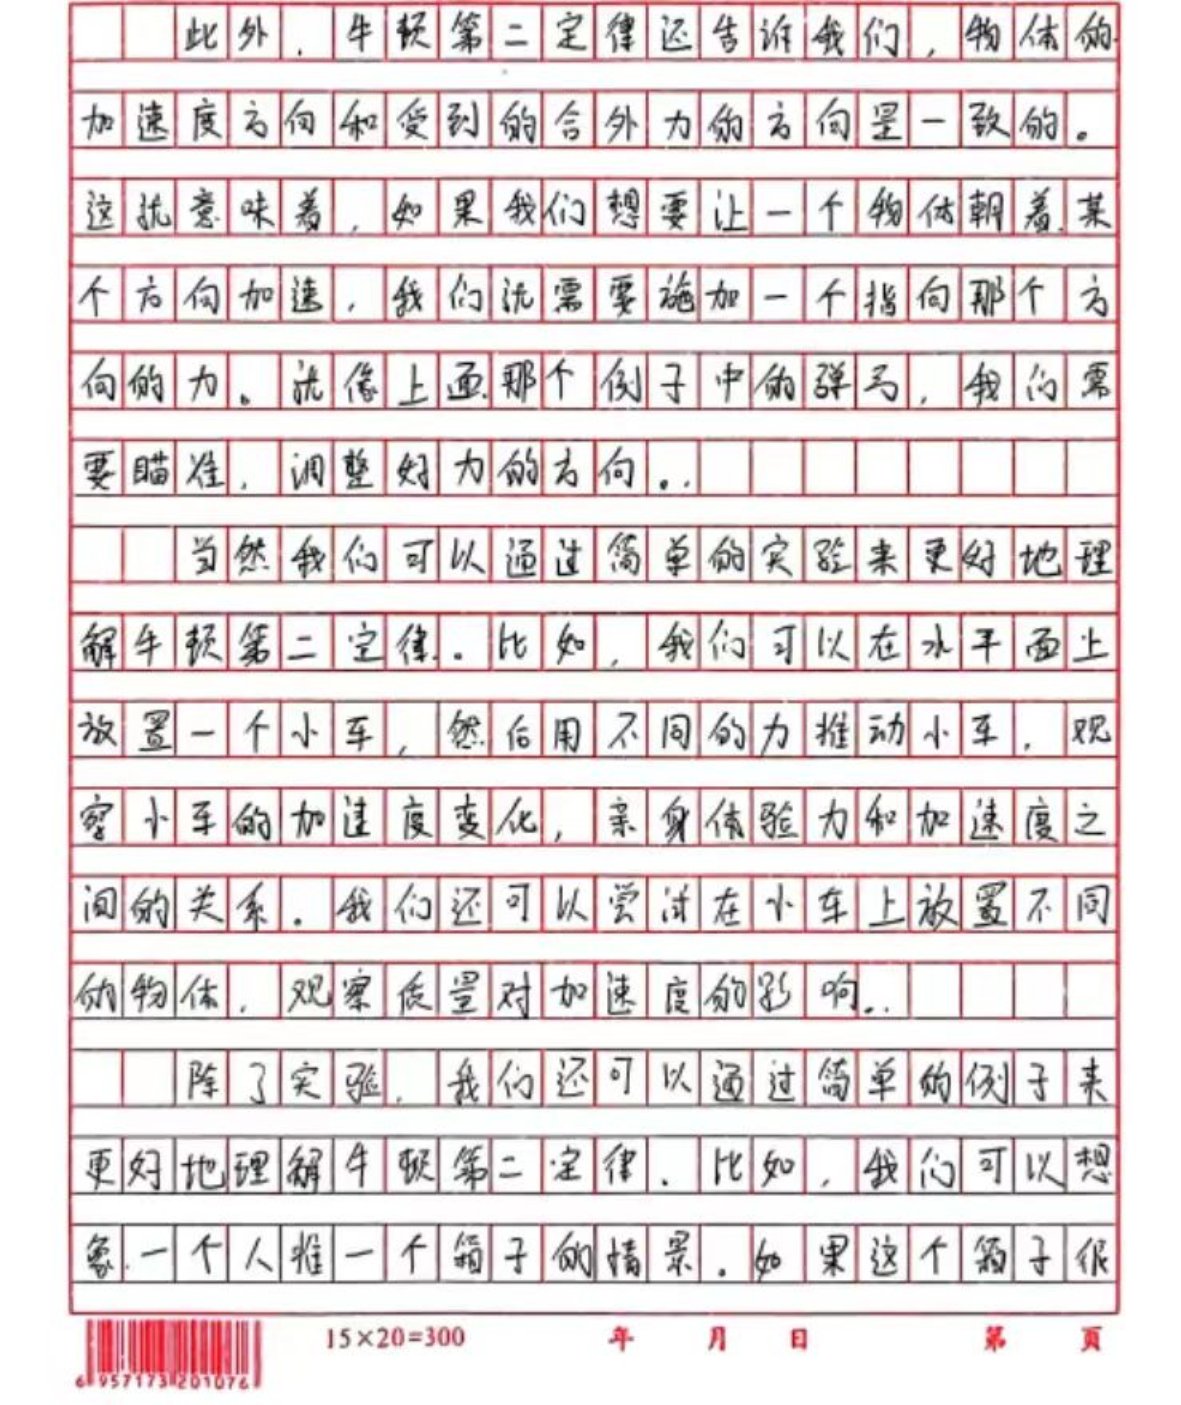 此外，牛顿第二定律还告诉我们，物体的
加速度方向和受到的合外力的方向是一致的。
这就意味着，如果我们想要让一个物体朝着某
个方向加速，我们就需要施加一个指向那个方
向的力。就像上面那个例子中的弹弓，我们需
要瞄准，调整好力的方向。.
当然我们可以通过简单的实验来更好地理
解牛顿第二定律。比如，我们可以在水平面上
放置一个小车，然后用不同的力推动小车，观
察小车的加速度变化，亲身体验力和加速度之
间的关系。我们还可以尝试在小车上放置不同
的物体，观察质量对加速度的影响..
除了实验，我们还可以通过简单的例子来
更好地理解牛顿第二定律。比如，我们可以想
象一个人推一个箱子的情景。如果这个箱子很
15×20=300 年 月 日 第 页
6 957173 201076